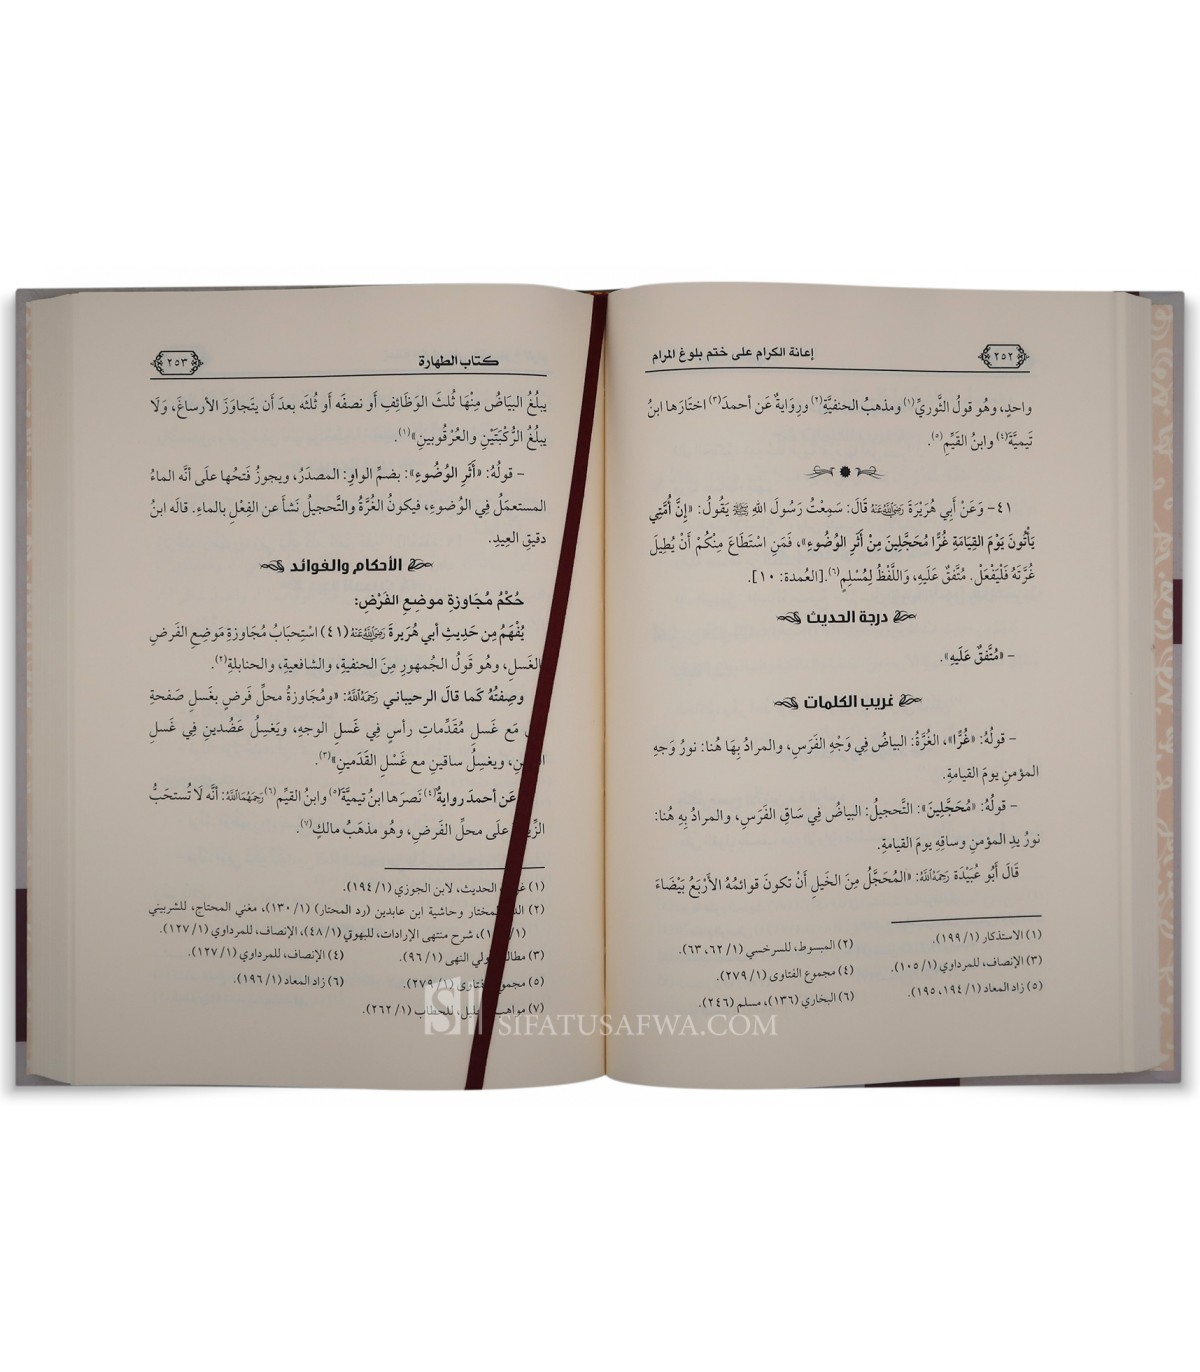 ٢٥٢
إعانة الكرام على ختم بلوغ المرام
واحدٍ، وهُو قولُ الثَّوريِّ(١) ومذهبُ الحنفيَّةِ(٢) ورِوَايةٌ عَن أحمدَ(٣) اختَارَها ابنُ
تَيميَّةَ(٤) وابنُ القَيِّمِ(٥).
٤١- وَعَنْ أَبِي هُرَيْرَةَ رَضِيَ اللَّهُ عَنْهُ قَالَ: سَمِعْتُ رَسُولَ اللهِ ﷺ يَقُولُ: «إِنَّ أُمَّتِي
يَأْتُونَ يَوْمَ القِيَامَةِ غُرًّا مُحَجَّلِينَ مِنْ أَثَرِ الوُضُوءِ»، فَمَنِ اسْتَطَاعَ مِنْكُمْ أَنْ يُطِيلَ
غُرَّتَهُ فَلْيَفْعَلْ. مُتَّفَقٌ عَلَيهِ، وَاللَّفْظُ لِمُسْلِمٍ(٦).[العُمدة: ١٠].
درجة الحديث
- «مُتَّفقٌ عَلَيهِ».
غريب الكلمات
- قولُهُ: «غُرًّا»، الغُرَّةُ: البياضُ فِي وَجْهِ الفَرَسِ، والمرادُ بِهَا هُنا: نورُ وَجهِ
المؤمنِ يومَ القيامةِ.
- قولُهُ: «مُحَجَّلِينَ»: التَّحجيلُ: البياضُ فِي سَاقِ الفَرَسِ، والمرادُ بِهِ هُنا:
نورُ يدِ المؤمنِ وساقِهِ يومَ القيامةِ.
قَالَ أَبُو عُبَيْدَة رَحِمَهُ اللَّهُ: «المُحَجَّلُ مِنَ الخَيلِ أَنْ تكونَ قوائمُهُ الأَرْبَعُ بَيْضَاءَ
(١) الاستذكار (١/ ١٩٩).
(٢) المبسوط، للسرخسي (١/ ٦٢، ٦٣).
(٣) الإنصاف، للمرداوي (١/ ١٠٥).
(٤) مجموع الفتاوى (١/ ٢٧٩).
(٥) زاد المعاد (١/ ١٩٤، ١٩٥).
(٦) البخاري (١٣٦)، مسلم (٢٤٦).
كتاب الطهارة
٢٥٣
يبلُغُ البيَاضُ مِنْهَا ثُلثَ الوَظَائِفِ أَو نصفَه أَو ثُلثَه بعدَ أَن يتَجاوَزَ الأرساغَ، وَلَا
يبلُغُ الرُّكْبَتَيْنِ والعُرْقُوبينِ»(١).
- قولُهُ: «أَثَرِ الوُضُوءِ»: بضمِّ الواوِ: المصدَرُ، ويجوزُ فَتحُها علَى أنَّه الماءُ
المستعمَلُ فِي الوُضوءِ، فيكونُ الغُرَّةُ والتَّحجيلُ نَشأَ عن الفِعْلِ بالماءِ. قالَه ابنُ
دقيقِ العِيدِ.
الأحكام والفوائد
حُكْمُ مُجَاوزةِ موضعِ الفَرْضِ:
يُفْهَمُ مِن حَدِيثِ أبي هُرَيرةَ رَضِيَ اللَّهُ عَنْهُ (٤١) اسْتِحبَابُ مُجَاوزةِ مَوضِعِ الفَرضِ
الغَسلِ، وهُو قَولُ الجُمهورِ مِنَ الحنفيةِ، والشافعيةِ، والحنابلةِ(٢).
وصِفتُهُ كَما قالَ الرحيباني رَحِمَهُ اللَّهُ: «ومُجَاوزةُ محلِّ فَرضٍ بغَسلِ صَفحةِ
مَع غَسلِ مُقَدِّماتِ رأسٍ فِي غَسلِ الوجهِ، ويَغسِلُ عَضُدينِ فِي غَسلِ
ويغسِلُ ساقينِ مع غَسْلِ القَدَمينِ»(٣).
عَن أحمدَ روايةٌ(٤) نَصرَها ابنُ تيميَّةَ(٥) وابنُ القيِّم(٦) رَحِمَهُمَا اللَّهُ: أنَّه لَا تُستَحَبُّ
علَى محلِّ الفَرضِ، وهُو مذهَبُ مالكٍ(٧).
(١) الحديث، لابن الجوزي (١/ ١٩٤).
(٢) المختار وحاشية ابن عابدين (رد المحتار) (١/ ١٣٠)، مغني المحتاج، للشربيني
شرح منتهى الإرادات، للبهوتي (١/ ٤٨)، الإنصاف، للمرداوي (١/ ١٢٧).
(٣) ولي النهى (١/ ٩٦).
(٤) الإنصاف، للمرداوي (١/ ١٢٧).
(٥) مجموع الفتاوى (١/ ٢٧٩).
(٦) زاد المعاد (١/ ١٩٦).
(٧) للحطاب (١/ ٢٦٢).
SIFATUSAFWA.COM